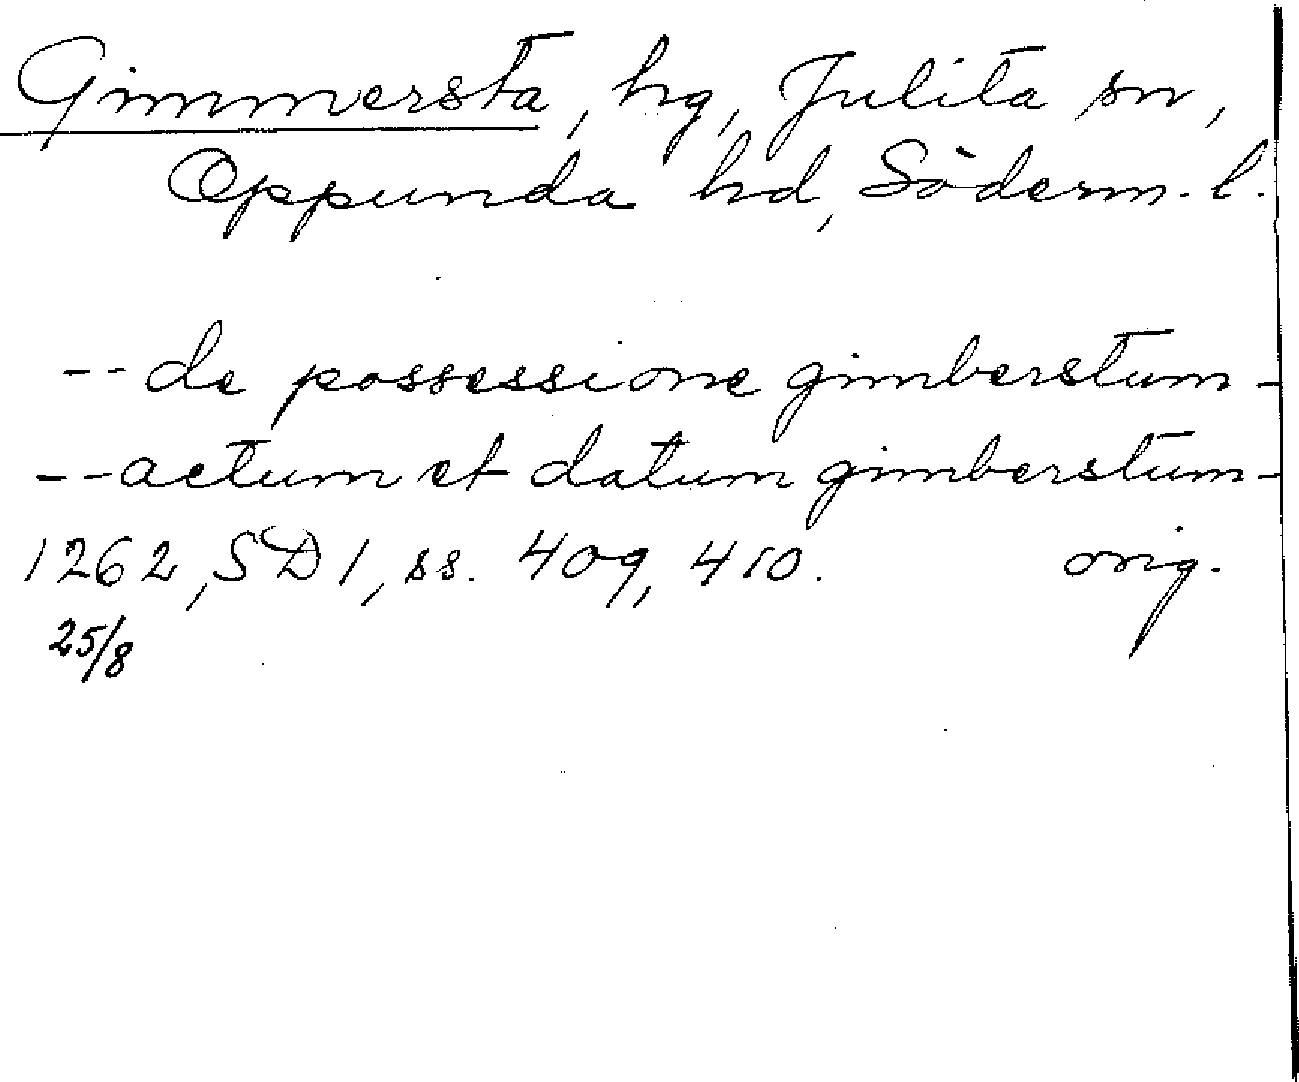 Gimmersta, hg, Julita sn,
Oppunda hd, Söderm. l.
-- de possessione gimberstum -
-- actum et datum gimberstum -
1262, SD 1, ss. 409, 410. orig.
25/8